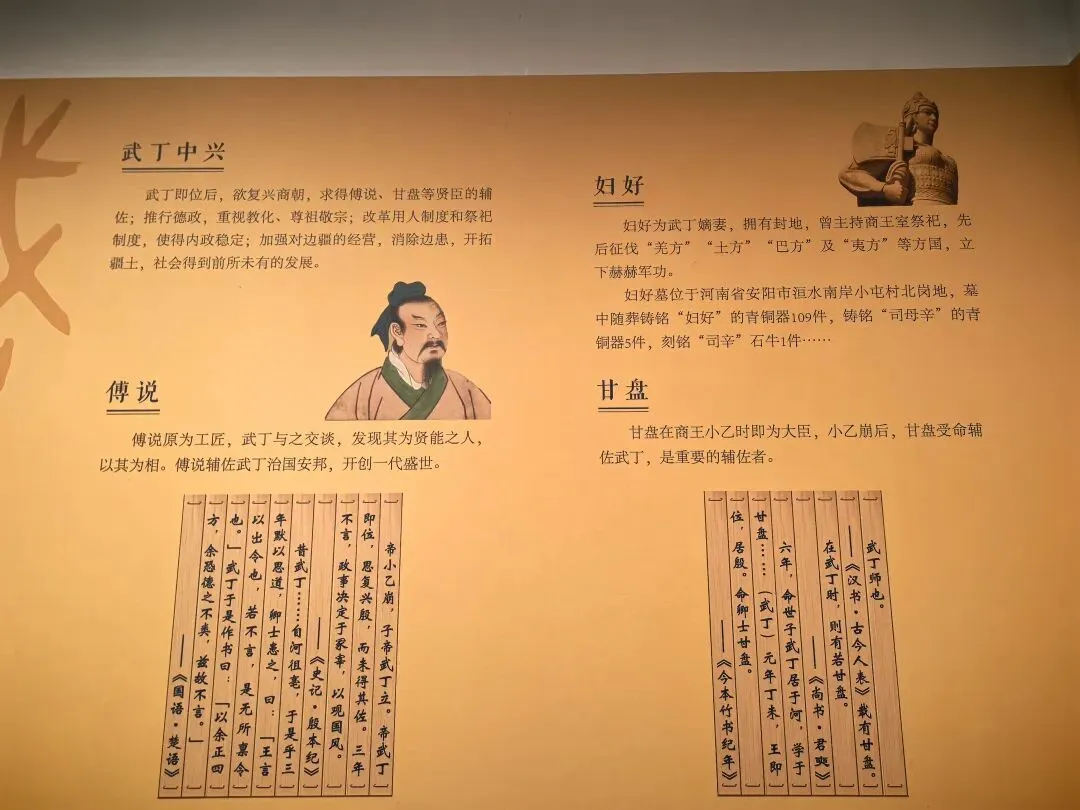 武丁中兴
武丁即位后，欲复兴商朝，求得傅说、甘盘等贤臣的辅
佐；推行德政，重视教化、尊祖敬宗；改革用人制度和祭祀
制度，使得内政稳定；加强对边疆的经营，消除边患，开拓
疆土，社会得到前所未有的发展。
傅说
傅说原为工匠，武丁与之交谈，发现其为贤能之人，
以其为相。傅说辅佐武丁治国安邦，开创一代盛世。
帝小乙崩，子帝武丁立。帝武丁
即位，思复兴殷，而未得其佐。三年
不言，政事决定于冢宰，以观国风。
——《史记·殷本纪》
昔武丁……自河徂亳，于是乎三
年默以思道，卿士患之，曰：「王言
以出令也，若不言，是无所禀令
也。」武丁于是作书曰：「以余正四
方，余恐德之不类，兹故不言。」
——《国语·楚语》
妇好
妇好为武丁嫡妻，拥有封地，曾主持商王室祭祀，先
后征伐“羌方”“土方”“巴方”及“夷方”等方国，立
下赫赫军功。
妇好墓位于河南省安阳市洹水南岸小屯村北岗地，墓
中随葬铸铭“妇好”的青铜器109件，铸铭“司母辛”的青
铜器5件，刻铭“司辛”石牛1件……
甘盘
甘盘在商王小乙时即为大臣，小乙崩后，甘盘受命辅
佐武丁，是重要的辅佐者。
武丁师也。
——《汉书·古今人表》载有甘盘。
在武丁时，则有若甘盘。
——《尚书·君奭》
六年，命世子武丁居于河，学于
甘盘……（武丁）元年丁未，王即
位，居殷。命卿士甘盘。
——《今本竹书纪年》